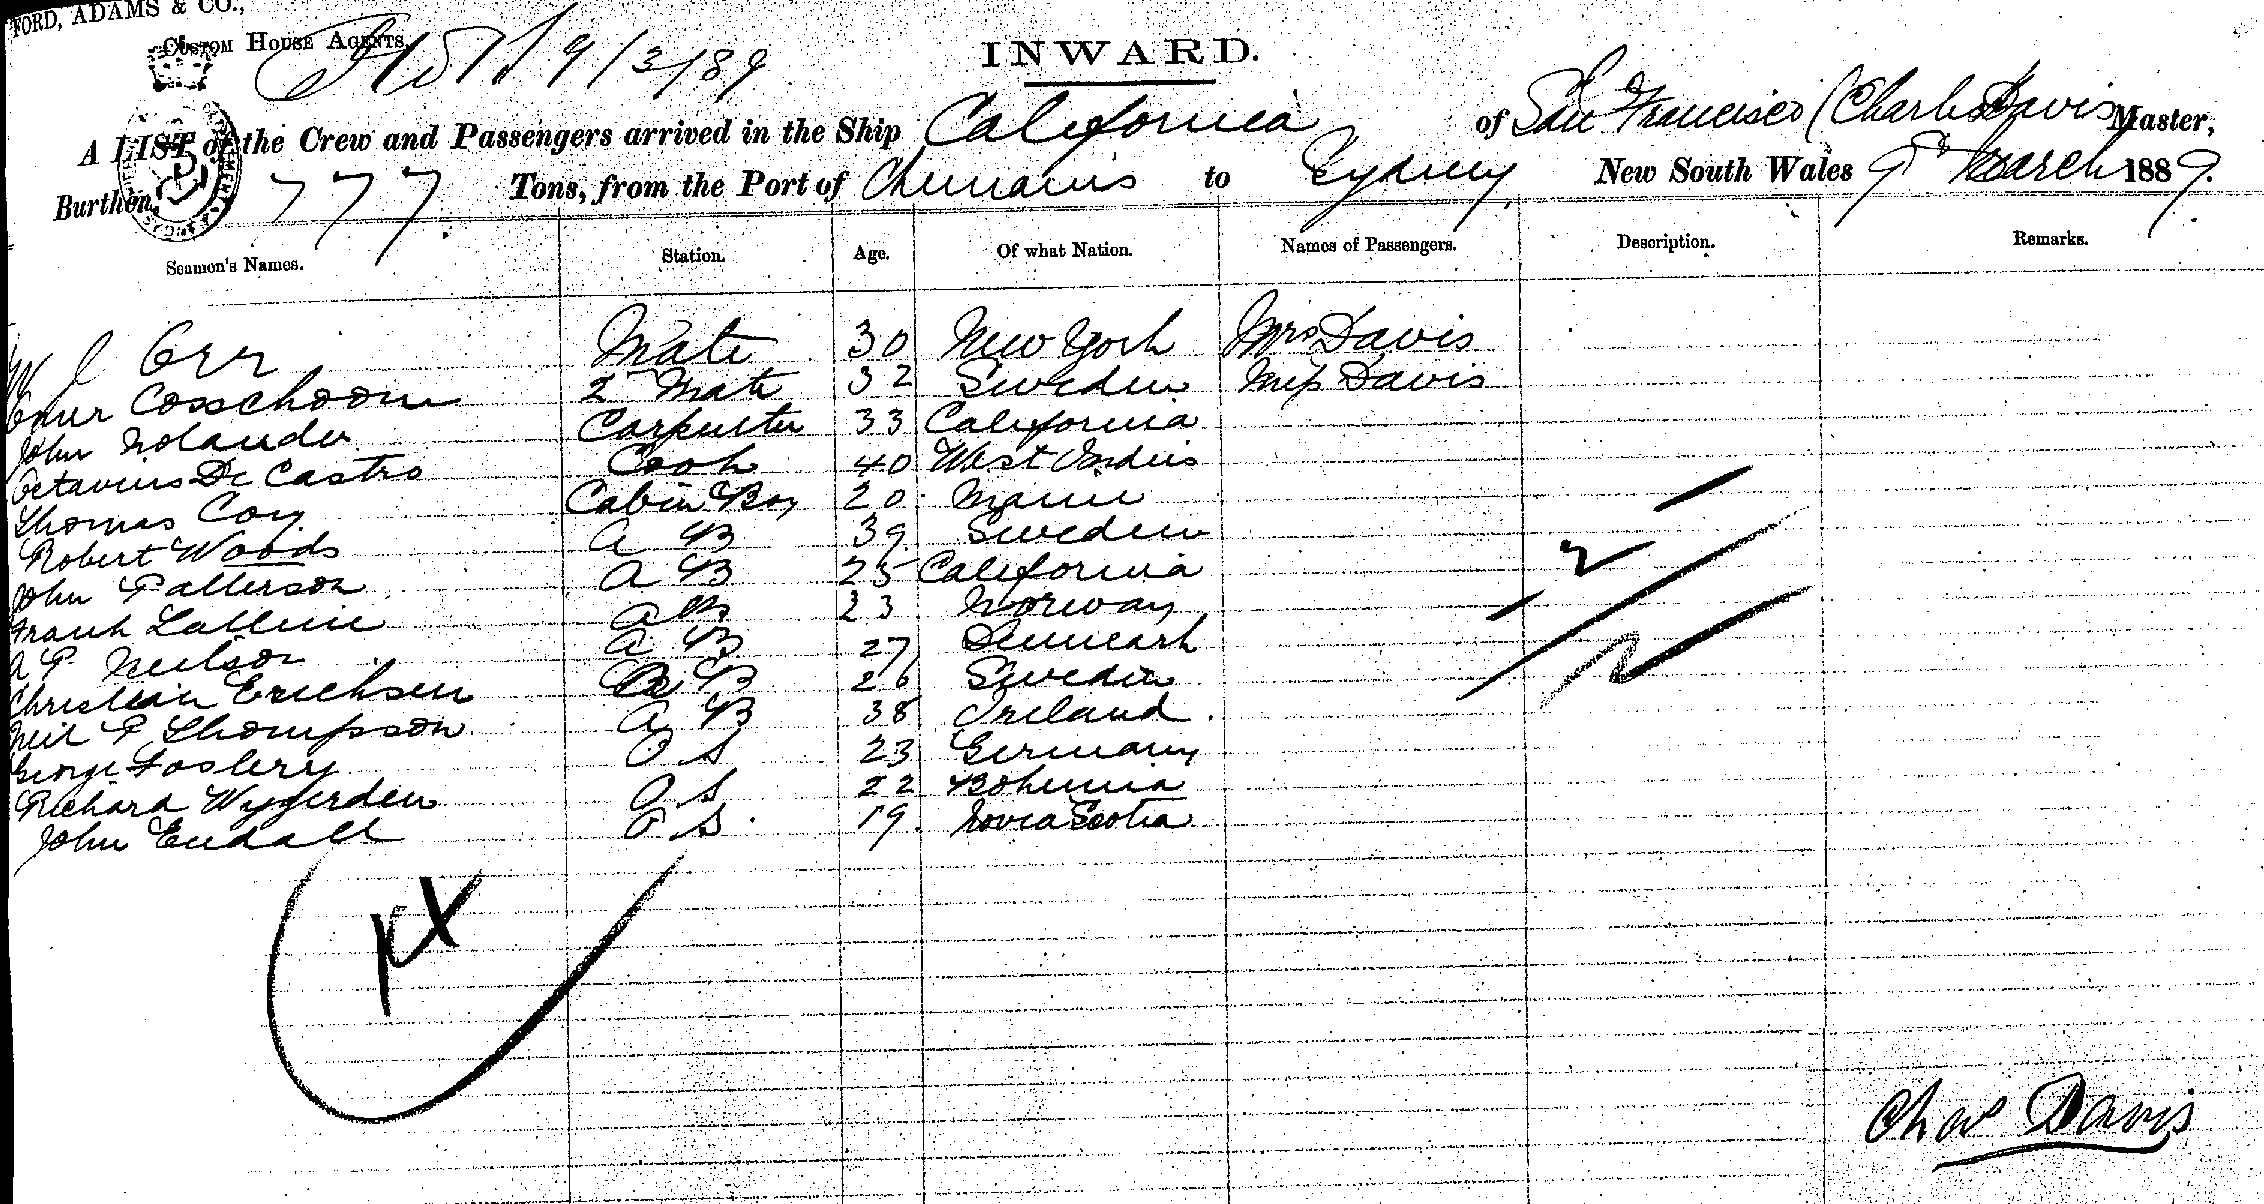 FORD, ADAMS & CO.,
CUSTOM HOUSE AGENTS,
9/3/89
INWARD.
A LIST of the Crew and Passengers arrived in the Ship California of San Francisco (Charles Davis Master,
Burthen, 777 Tons, from the Port of Chemainis to Sydney, New South Wales 9th March 1889.
Seamen's Names. Station. Age. Of what Nation. Names of Passengers. Description. Remarks.
J Orr Mate 30 New York Mrs Davis
Cosschoom 2nd Mate 32 Sweden Miss Davis
John Nolander Carpenter 33 California
Octavius De Castro Cook 40 West Indies
Thomas Coy Cabin Boy 20 Maine
Robert Woods A B 39 Sweden
John Patterson A B 25 California
Frank A B 23 Norway
A P Neilson A B 27 Denmark
Christian Erichsen A B 26 Sweden
Neil P Thompson A B 38 Ireland
George Foslery O S 23 Germany
Richard Wygerden O S 22 Bohemia
John Endall O S 19 Nova Scotia
2
Chas Davis